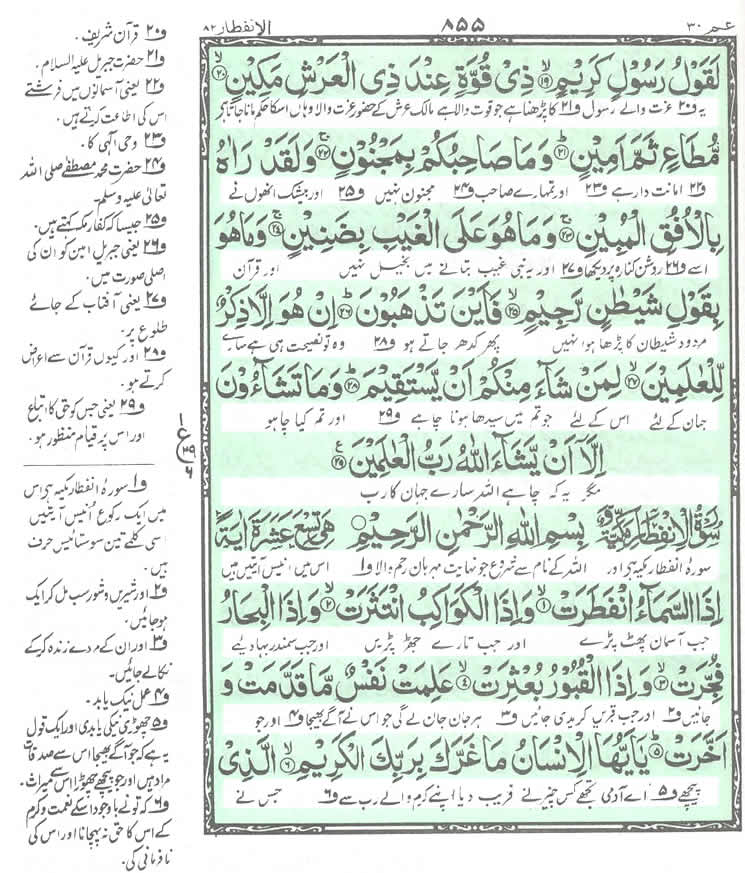 عـم ۳۰
۸۵۵
الانفطار ۸۲
لَقَوْلُ رَسُوْلٍ كَرِيْمٍ ۙ﴿۱۹﴾ ذِيْ قُوَّةٍ عِنْدَ ذِي الْعَرْشِ مَكِيْنٍ ۙ﴿۲۰﴾
یہ و۲۰ عزت والے رسول و۲۱ کا پڑھنا ہے جو قوت والا ہے مالک عرش کے حضور عزت والا وہاں اسکا حکم مانا جاتا ہے
مُّطَاعٍ ثَمَّ اَمِيْنٍ ؕ﴿۲۱﴾ وَمَا صَاحِبُكُمْ بِمَجْنُوْنٍ ۚ﴿۲۲﴾ وَلَقَدْ رَاٰهُ
و۲۲ امانت دار ہے و۲۳ اور تمہارے صاحب و۲۴ مجنون نہیں و۲۵ اور بیشک انھوں نے
بِالْاُفُقِ الْمُبِيْنِ ۚ﴿۲۳﴾ وَمَا هُوَ عَلَى الْغَيْبِ بِضَنِيْنٍ ۚ﴿۲۴﴾ وَمَا هُوَ
اسے و۲۶ روشن کنارہ پر دیکھا و۲۷ اور یہ نبی غیب بتانے میں بخیل نہیں اور قرآن
بِقَوْلِ شَيْطٰنٍ رَّجِيْمٍ ۙ﴿۲۵﴾ فَاَيْنَ تَذْهَبُوْنَ ؕ﴿۲۶﴾ اِنْ هُوَ اِلَّا ذِكْرٌ
مردود شیطان کا پڑھا ہوا نہیں پھر کدھر جاتے ہو و۲۸ وہ تو نصیحت ہی ہے سارے
لِّلْعٰلَمِيْنَ ۙ﴿۲۷﴾ لِمَنْ شَآءَ مِنْكُمْ اَنْ يَّسْتَقِيْمَ ؕ﴿۲۸﴾ وَمَا تَشَآءُوْنَ
جہان کے لئے اس کے لئے جو تم میں سیدھا ہونا چاہے و۲۹ اور تم کیا چاہو
اِلَّا اَنْ يَّشَآءَ اللّٰهُ رَبُّ الْعٰلَمِيْنَ ﴿۲۹﴾
مگر یہ کہ چاہے اللہ سارے جہان کا رب
سُوْرَةُ الْاِنْفِطَارِ مَكِّيَّةٌ وَّ بِسْمِ اللّٰهِ الرَّحْمٰنِ الرَّحِيْمِ هِيَ تِسْعَ عَشَرَةَ اٰيَةً
سورۂ انفطار مکیہ ہے اور اللہ کے نام سے شروع جو نہایت مہربان رحم والا و۱ اس میں انیس آیتیں ہیں
اِذَا السَّمَآءُ انْفَطَرَتْ ۙ﴿۱﴾ وَاِذَا الْكَوَاكِبُ انْتَثَرَتْ ۙ﴿۲﴾ وَاِذَا الْبِحَارُ
جب آسمان پھٹ پڑے اور جب تارے جھڑ پڑیں اور جب سمندر بہا دیے
فُجِّرَتْ ۙ﴿۳﴾ وَاِذَا الْقُبُوْرُ بُعْثِرَتْ ۙ﴿۴﴾ عَلِمَتْ نَفْسٌ مَّا قَدَّمَتْ وَ
جائیں و۲ اور جب قبریں کریدی جائیں و۳ ہر جان جان لے گی جو اس نے آگے بھیجا و۴ اور جو
اَخَّرَتْ ؕ﴿۵﴾ يٰٓاَيُّهَا الْاِنْسَانُ مَا غَرَّكَ بِرَبِّكَ الْكَرِيْمِ ۙ﴿۶﴾ الَّذِيْ
پیچھے و۵ اے آدمی تجھے کس چیز نے فریب دیا اپنے کرم والے رب سے و۶ جس نے
و۲۰ قرآن شریف ۔
و۲۱ حضرت جبریل علیہ السلام ۔
و۲۲ یعنی آسمانوں میں فرشتے
اس کی اطاعت کرتے ہیں ۔
و۲۳ وحی الٰہی کا ۔
و۲۴ حضرت محمد مصطفےٰ صلی اللہ
تعالیٰ علیہ وسلم۔
و۲۵ جیسا کہ کفار مکہ کہتے ہیں ۔
و۲۶ یعنی جبریل امین کو ان کی
اصلی صورت میں ۔
و۲۷ یعنی آفتاب کے جائے
طلوع پر ۔
و۲۸ اور کیوں قرآن سے اعراض
کرتے ہو ۔
و۲۹ یعنی جس کو حق کا اتباع
اور اس پر قیام منظور ہو ۔
۱
ع
۲۹
۶
و۱ سورۂ انفطار مکیہ ہے اس
میں ایک رکوع اُنیس آیتیں
اسّی کلمے تین سو ستائیس حرف
ہیں ۔
و۲ اور شیریں و شور سب مل کر ایک
ہو جائیں ۔
و۳ اور ان کے مردے زندہ کرکے
نکالے جائیں۔
و۴ عمل نیک یا بد ۔
و۵ چھوڑی نیکی یا بدی اور ایک قول
یہ ہے کہ جو آگے بھیجا اس سے صدقات
مراد ہیں اور جو پیچھے چھوڑا اس سے میراث ۔
و۶ کہ تو نے باوجود اسکے نعمت و کرم
کے اس کا حق نہ پہچانا اور اس کی
نافرمانی کی ۔